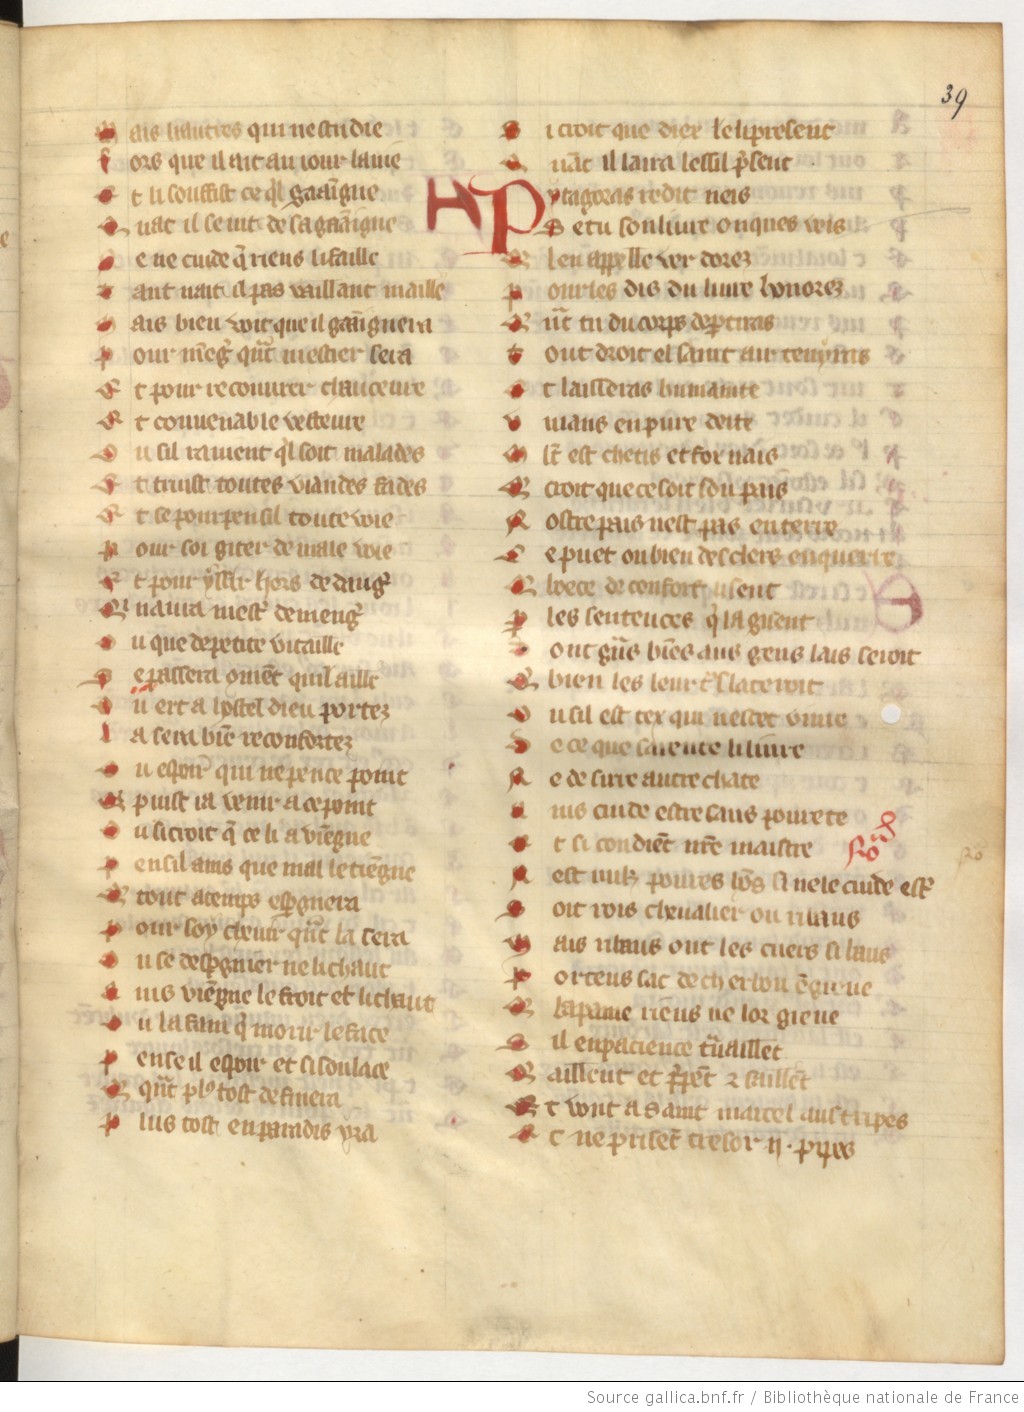 39
ais li autres qui nestudie
ors que il ait au iour la uie
t li souffist ce ql gaaigne
uāt il se uit de sa gaaigne
e ne cuide q̄ riens li faille
ant nait il pas vaillant maille
ais bien voit que il gaaignera
our meḡ qn̄t mestier sera
t pour recouurer chauceure
t conuenable vesteure
u sil rauient ql soit malades
t truist toutes viandes fades
t se pourpensil toute voie
our soi giter de male voie
t pour yssir hors de dang̾
naura mest̾ de meng̾
u que de petite vitaille
e passera 9ment quil aille
u ert a lostel dieu portez
a sera biē reconfortez
u espoir qui ne pence point
puist ia venir a ce point
u si croit q̄ ce li auiēgne
ensil ains que mal le tiēgne
tout a temps espgnera
our soy cheuir qn̄t la sera
u se despgnier ne li chaut
nis viēgne le froit et li chaut
u la fain q̄ morir le face
ense il espoir et si soulace
qn̄t pl9 tost definera
lus tost en paradis yra
i croit que diex le li present
uāt il laira lessil p̄sent
H
Pytagoras redit neis
S e tu son liure onques veis
len appelle vers dorez
our les dis du liure honorez
n̄t tu du corps deptiras
out droit el saint air ten yras
t laisseras humanite
uians en pure deite
lt̄ est chetis et fox nais
croit que ce soit son pais
ostre pais nest pas en terre
e puet on bien des clers enquerre
boece de confort lisent
les sentences q̄ la gisent
ont gn̄s biēs aus gens lais feroit
bien les leur tn̄slateroit
u sil est tex qui ne sace viure
e ce que sa rente li liure
e desirre autre chate
nis cuide estre sans pourete
t si con dient nr̄e maistre
est nulz poures sil ne le cuide estr̾
oit rois cheualier ou ribaus
ais ribaus ont les cuers si baus
ortens sac de charbon en gieue
la paine riens ne lor grieue
il en pacience t̾uaillent
aillent et tripent et saillent
t vont a saint marcel aus tripes
t ne prisent tresor .ij. pipes